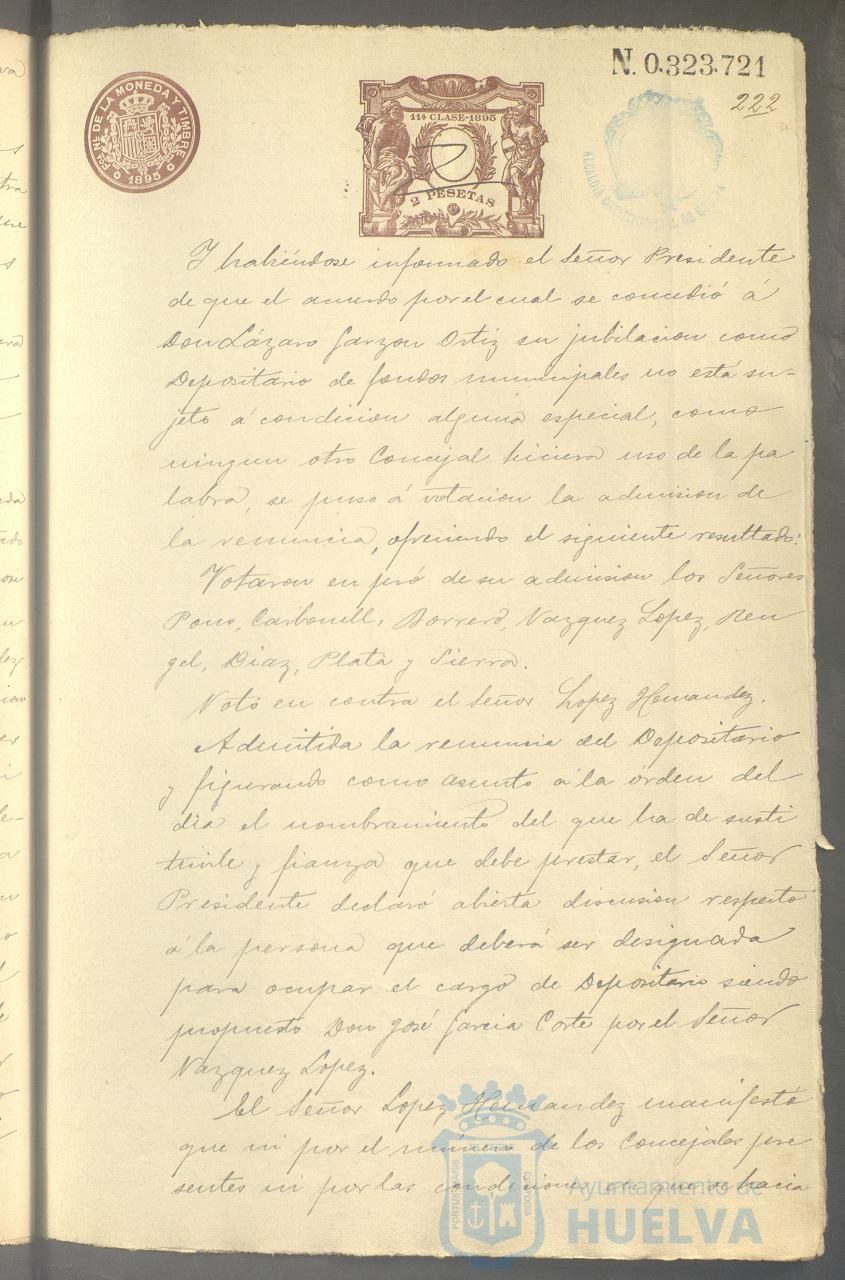 N. 0.323.721
222
Fca. Nal. DE LA MONEDA Y TIMBRE
1895
11ª CLASE-1895
2 PESETAS
ALCALDÍA
Y habiéndose informado el Señor Presidente
de que el acuerdo por el cual se concedió á
Don Lázaro Garzon Ortiz su jubilacion como
Depositario de fondos municipales no está su-
jeto á condicion alguna especial, como
ningun otro Concejal hiciera uso de la pa
labra, se puso á votacion la admision de
la renuncia, ofreciendo el siguiente resultado:
Votaron en pró de su admision los Señores
Pons, Carbonell, Borrero, Vazquez Lopez, Ren
gel, Diaz, Plata y Sierra.
Votó en contra el Señor Lopez Hernandez.
Admitida la renuncia del Depositario
y figurando como asunto á la órden del
dia el nombramiento del que ha de susti
tuirle y fianza que debe prestar, el Señor
Presidente declaró abierta discusion respecto
á la persona que deberá ser designada
para ocupar el cargo de Depositario siendo
propuesto Don José Garcia Corte por el Señor
Vazquez Lopez.
El Señor Lopez Hernandez manifestó
que ni por el número de los Concejales pre
sentes ni por las condiciones en que se hacia
PORTUS MARIS
CUSTODIA
Ayuntamiento de
HUELVA